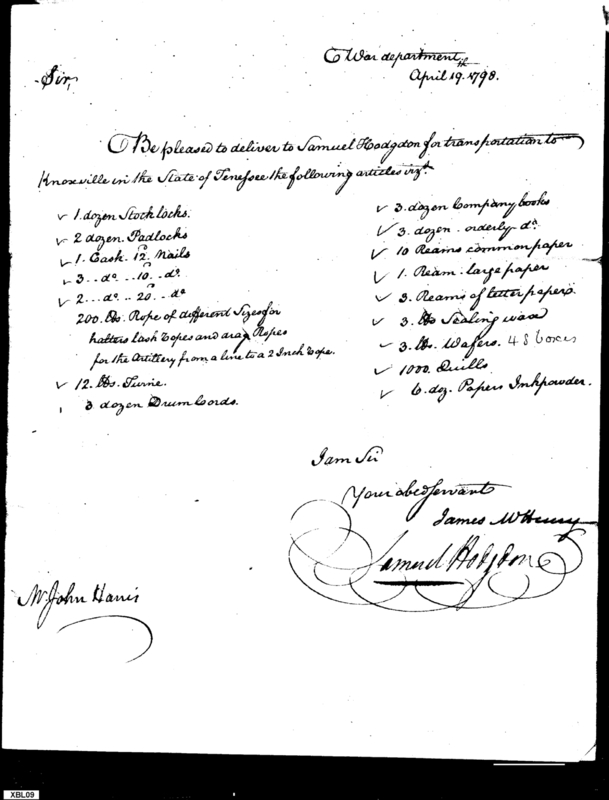 War department
April 19th 1798.
Sir,
Be pleased to deliver to Samuel Hodgdon for transportation to
Knoxville in the State of Tenessee the following articles vizt.
✓ 1. dozen Stock locks.
✓ 2 dozen Padlocks
✓ 1. Cask 12d. Nails
✓ 3.. do. .. 10.. do.
✓ 2... do. .. 20.. do
200. lbs. Rope of different Sizes for
halters lash Ropes and drag Ropes
for the Artillery from a line to a 2 Inch Rope.
✓ 12. lbs. Twine.
3 dozen Drum Cords.
✓ 3. dozen Company books
✓ 3. dozen . orderly do.
✓ 10 Reams common paper
✓ 1. Ream. large paper
✓ 3. Reams of letter papers
✓ 3. lbs Sealing wax
✓ 3. lbs. Wafers. 48 boxes
✓ 1000. Quills
✓ 6. doz. Papers Inkpowder.
I am Sir
Your obed servant
James McHenry
Samuel Hodgdon
Mr. John Harris
XBL09